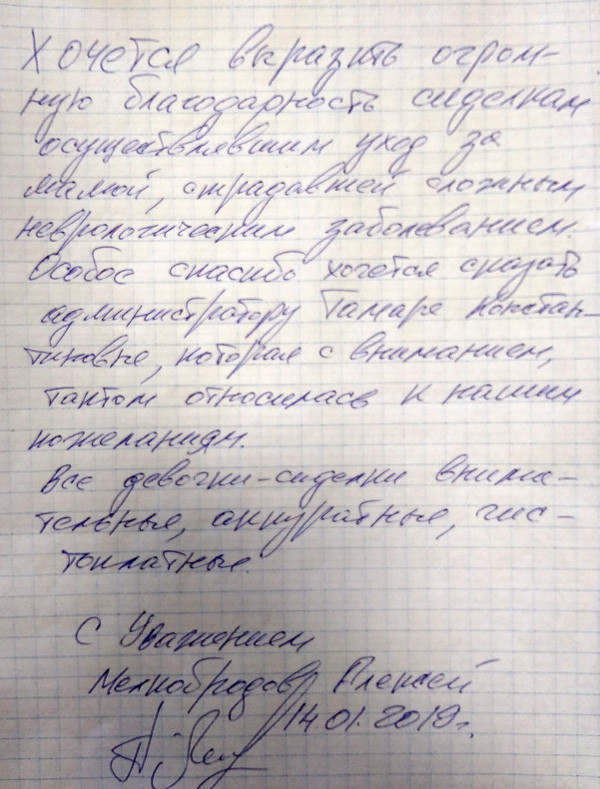 Хочется выразить огром-
ную благодарность сиделкам
осуществлявшим уход за
мамой, страдавшей сложным
неврологическим заболеванием.
Особое спасибо хочется сказать
администратору Тамаре Констан-
тиновне, которая с вниманием,
тактом относилась к нашим
пожеланиям.
Все девочки-сиделки внима-
тельные, аккуратные, чис-
топлотные.
С Уважением
Мелкобродов Алексей
14.01.2019г.